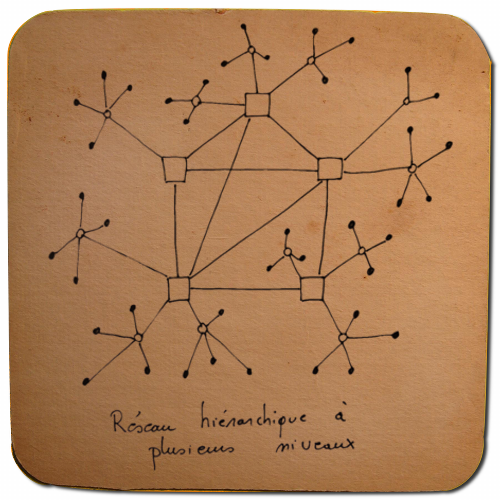 Réseau hiérarchique à
plusieurs niveaux